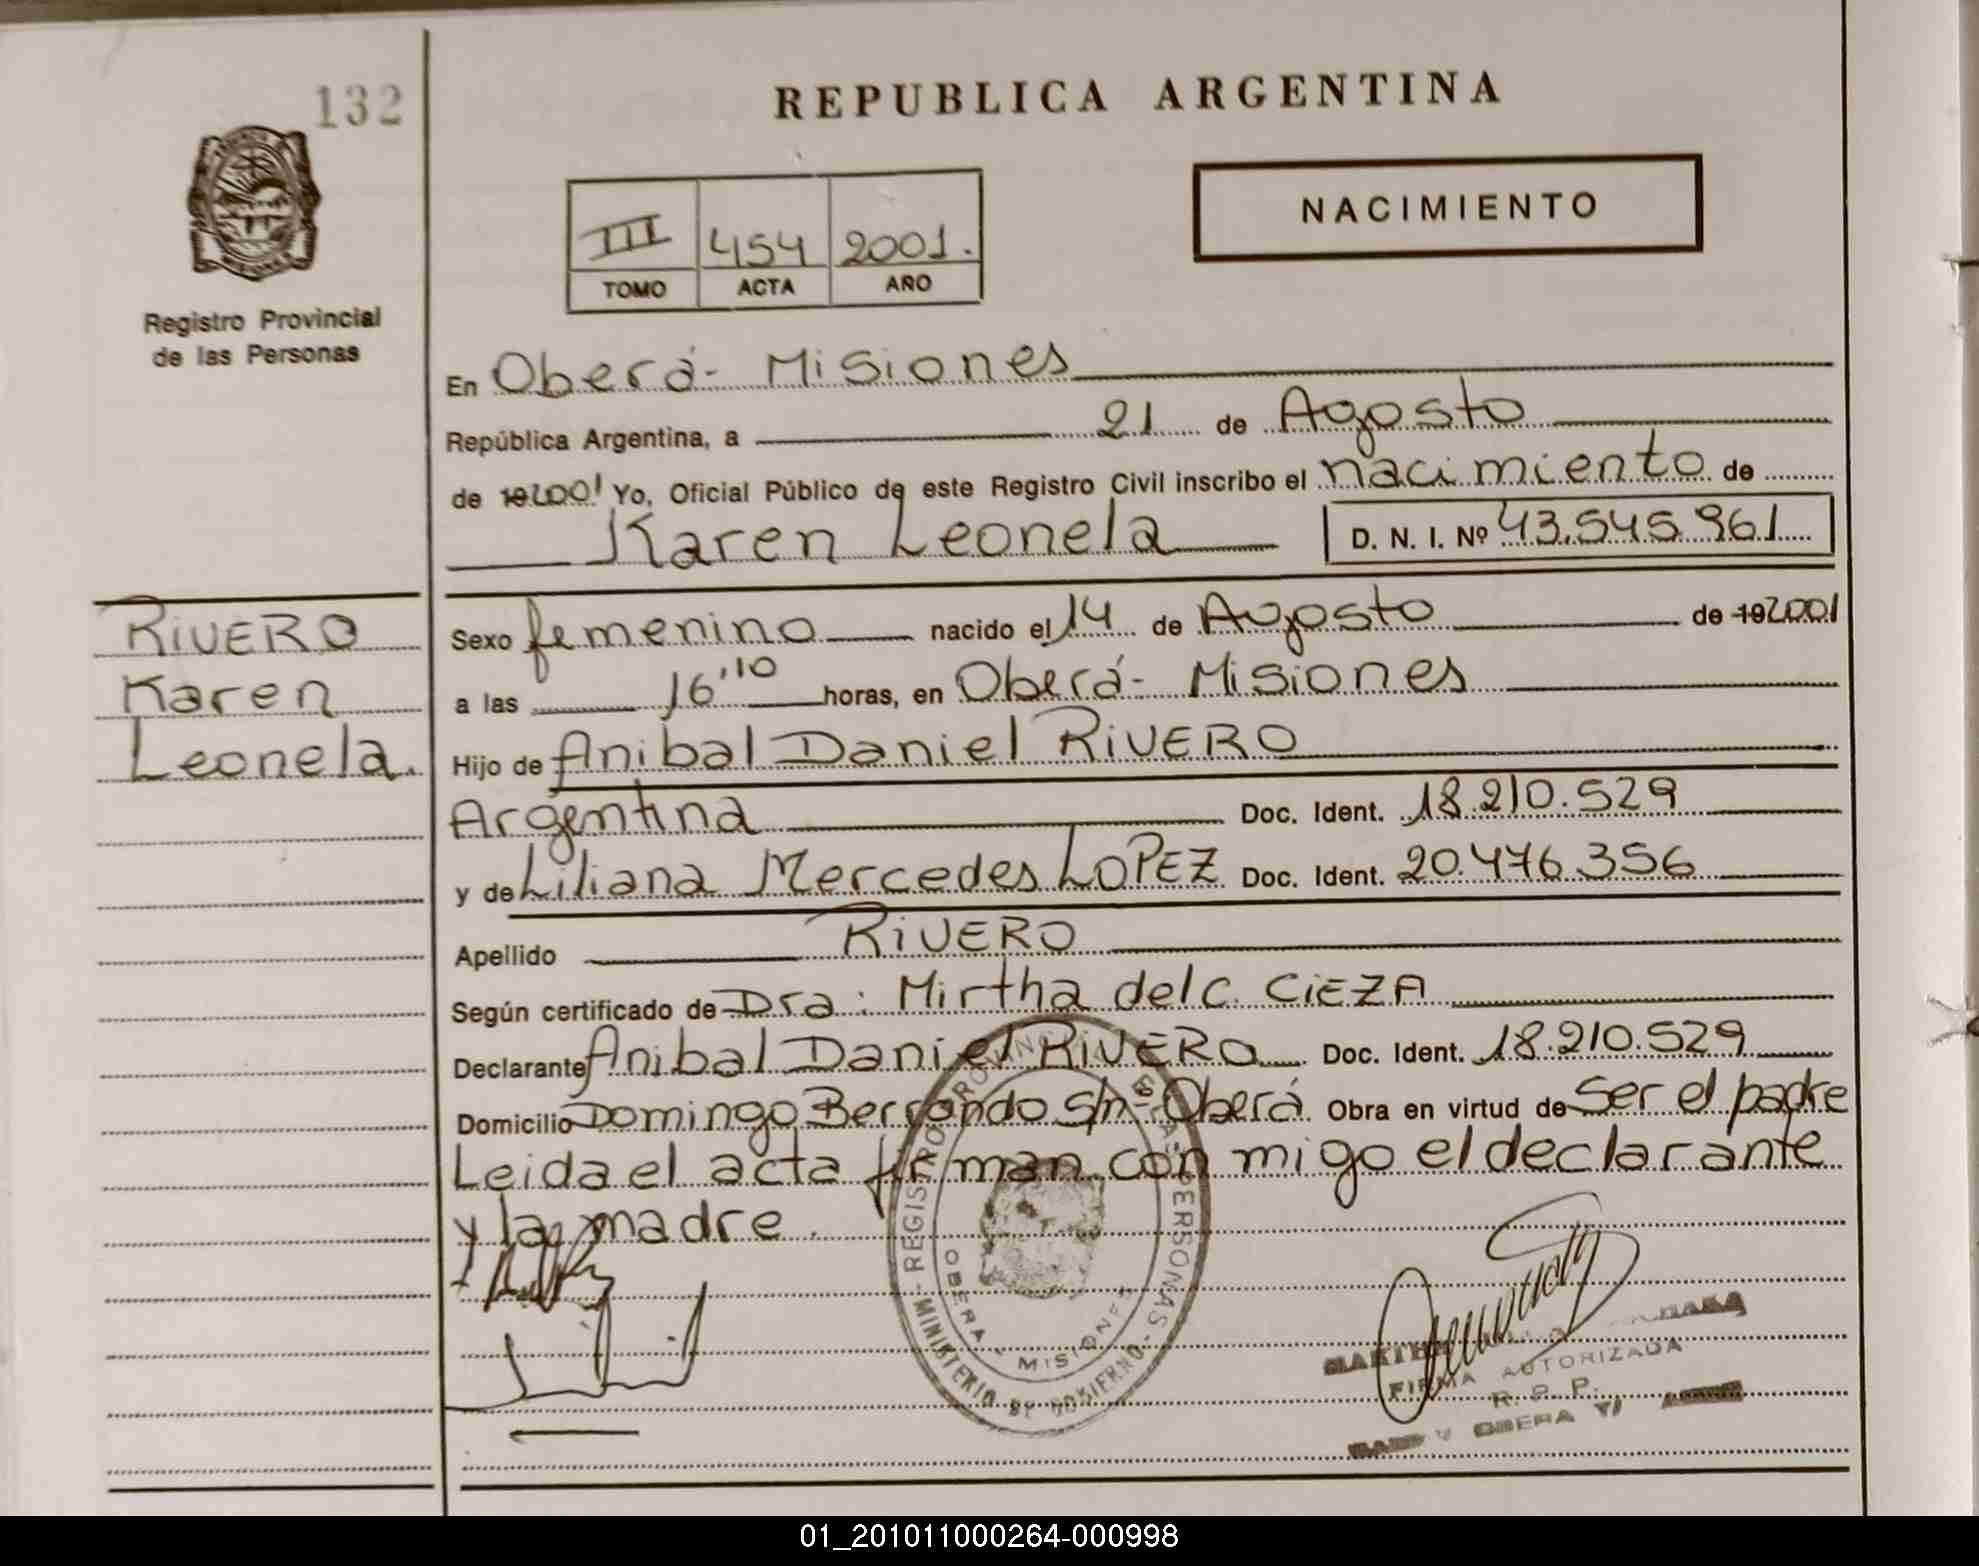 132
REPUBLICA ARGENTINA
NACIMIENTO
III 454 2001.
TOMO ACTA AÑO
Registro Provincial
de las Personas
En Oberá - Misiones
República Argentina, a 21 de Agosto
de 192001 Yo, Oficial Público de este Registro Civil inscribo el nacimiento de
Karen Leonela D. N. I. Nº 43.545.961
RIVERO
Karen
Leonela.
Sexo femenino nacido el 14 de Agosto de 192001
a las 16,10 horas, en Oberá - Misiones
Hijo de Anibal Daniel RIVERO
Argentina Doc. Ident. 18.210.529
y de Liliana Mercedes LOPEZ Doc. Ident. 20.476.356
Apellido RIVERO
Según certificado de Dra: Mirtha del C. CIEZA
Declarante Anibal Daniel RIVERO Doc. Ident. 18.210.529
Domicilio Domingo Berrondo s/n - Oberá Obra en virtud de Ser el padre
Leida el acta firman con migo el declarante
y la madre.
REGISTRO PROVINCIAL DE LAS PERSONAS
MINISTERIO DE GOBIERNO
OBERA - MISIONES
FIRMA AUTORIZADA
R. P. P.
OBERA
01_201011000264-000998